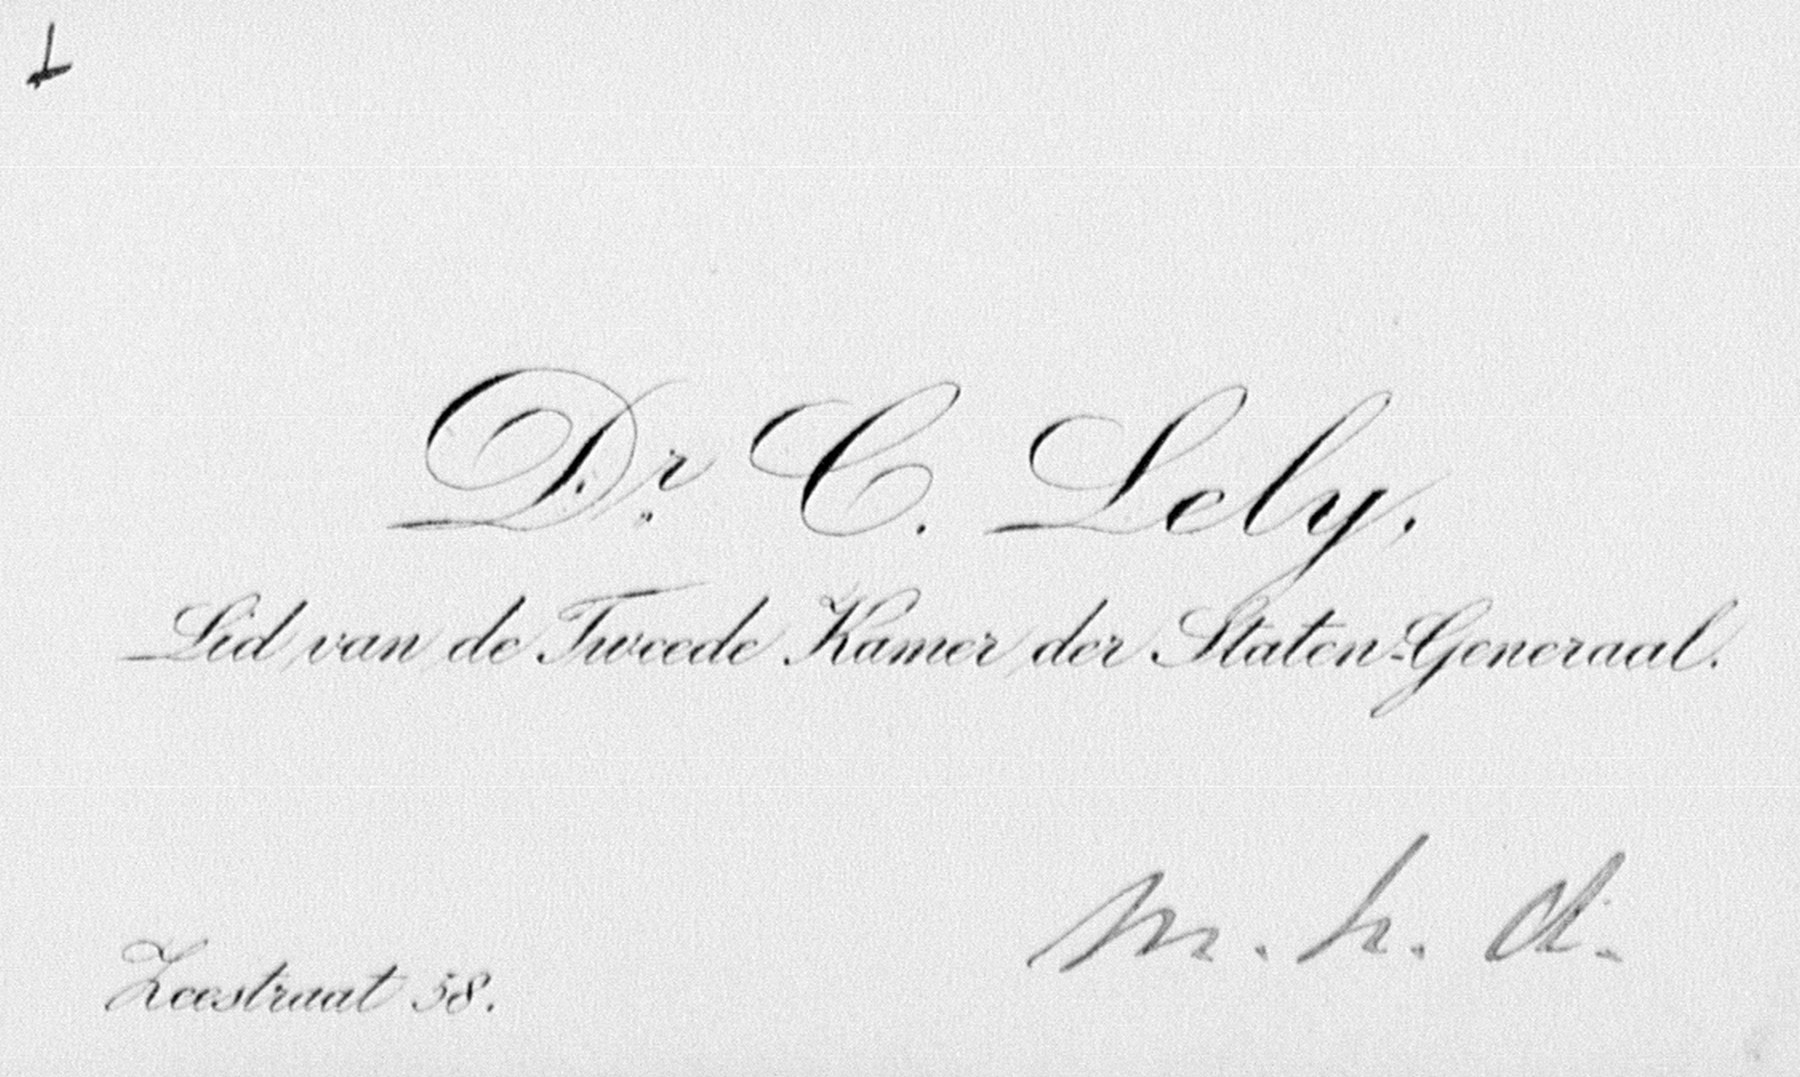 Dr. C. Lely,
Lid van de Tweede Kamer der Staten-Generaal.
m. h. d.
Zeestraat 58.